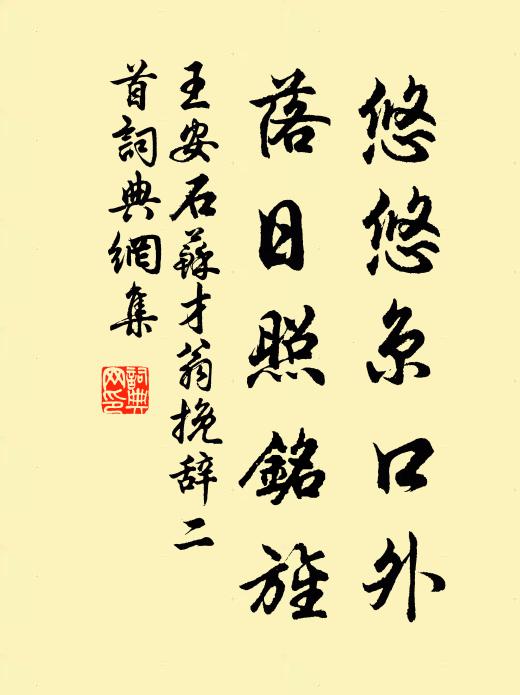 悠悠京口外
落日照銘旌
王安石蘇才翁挽辞二
首詞典網集
詞典網印